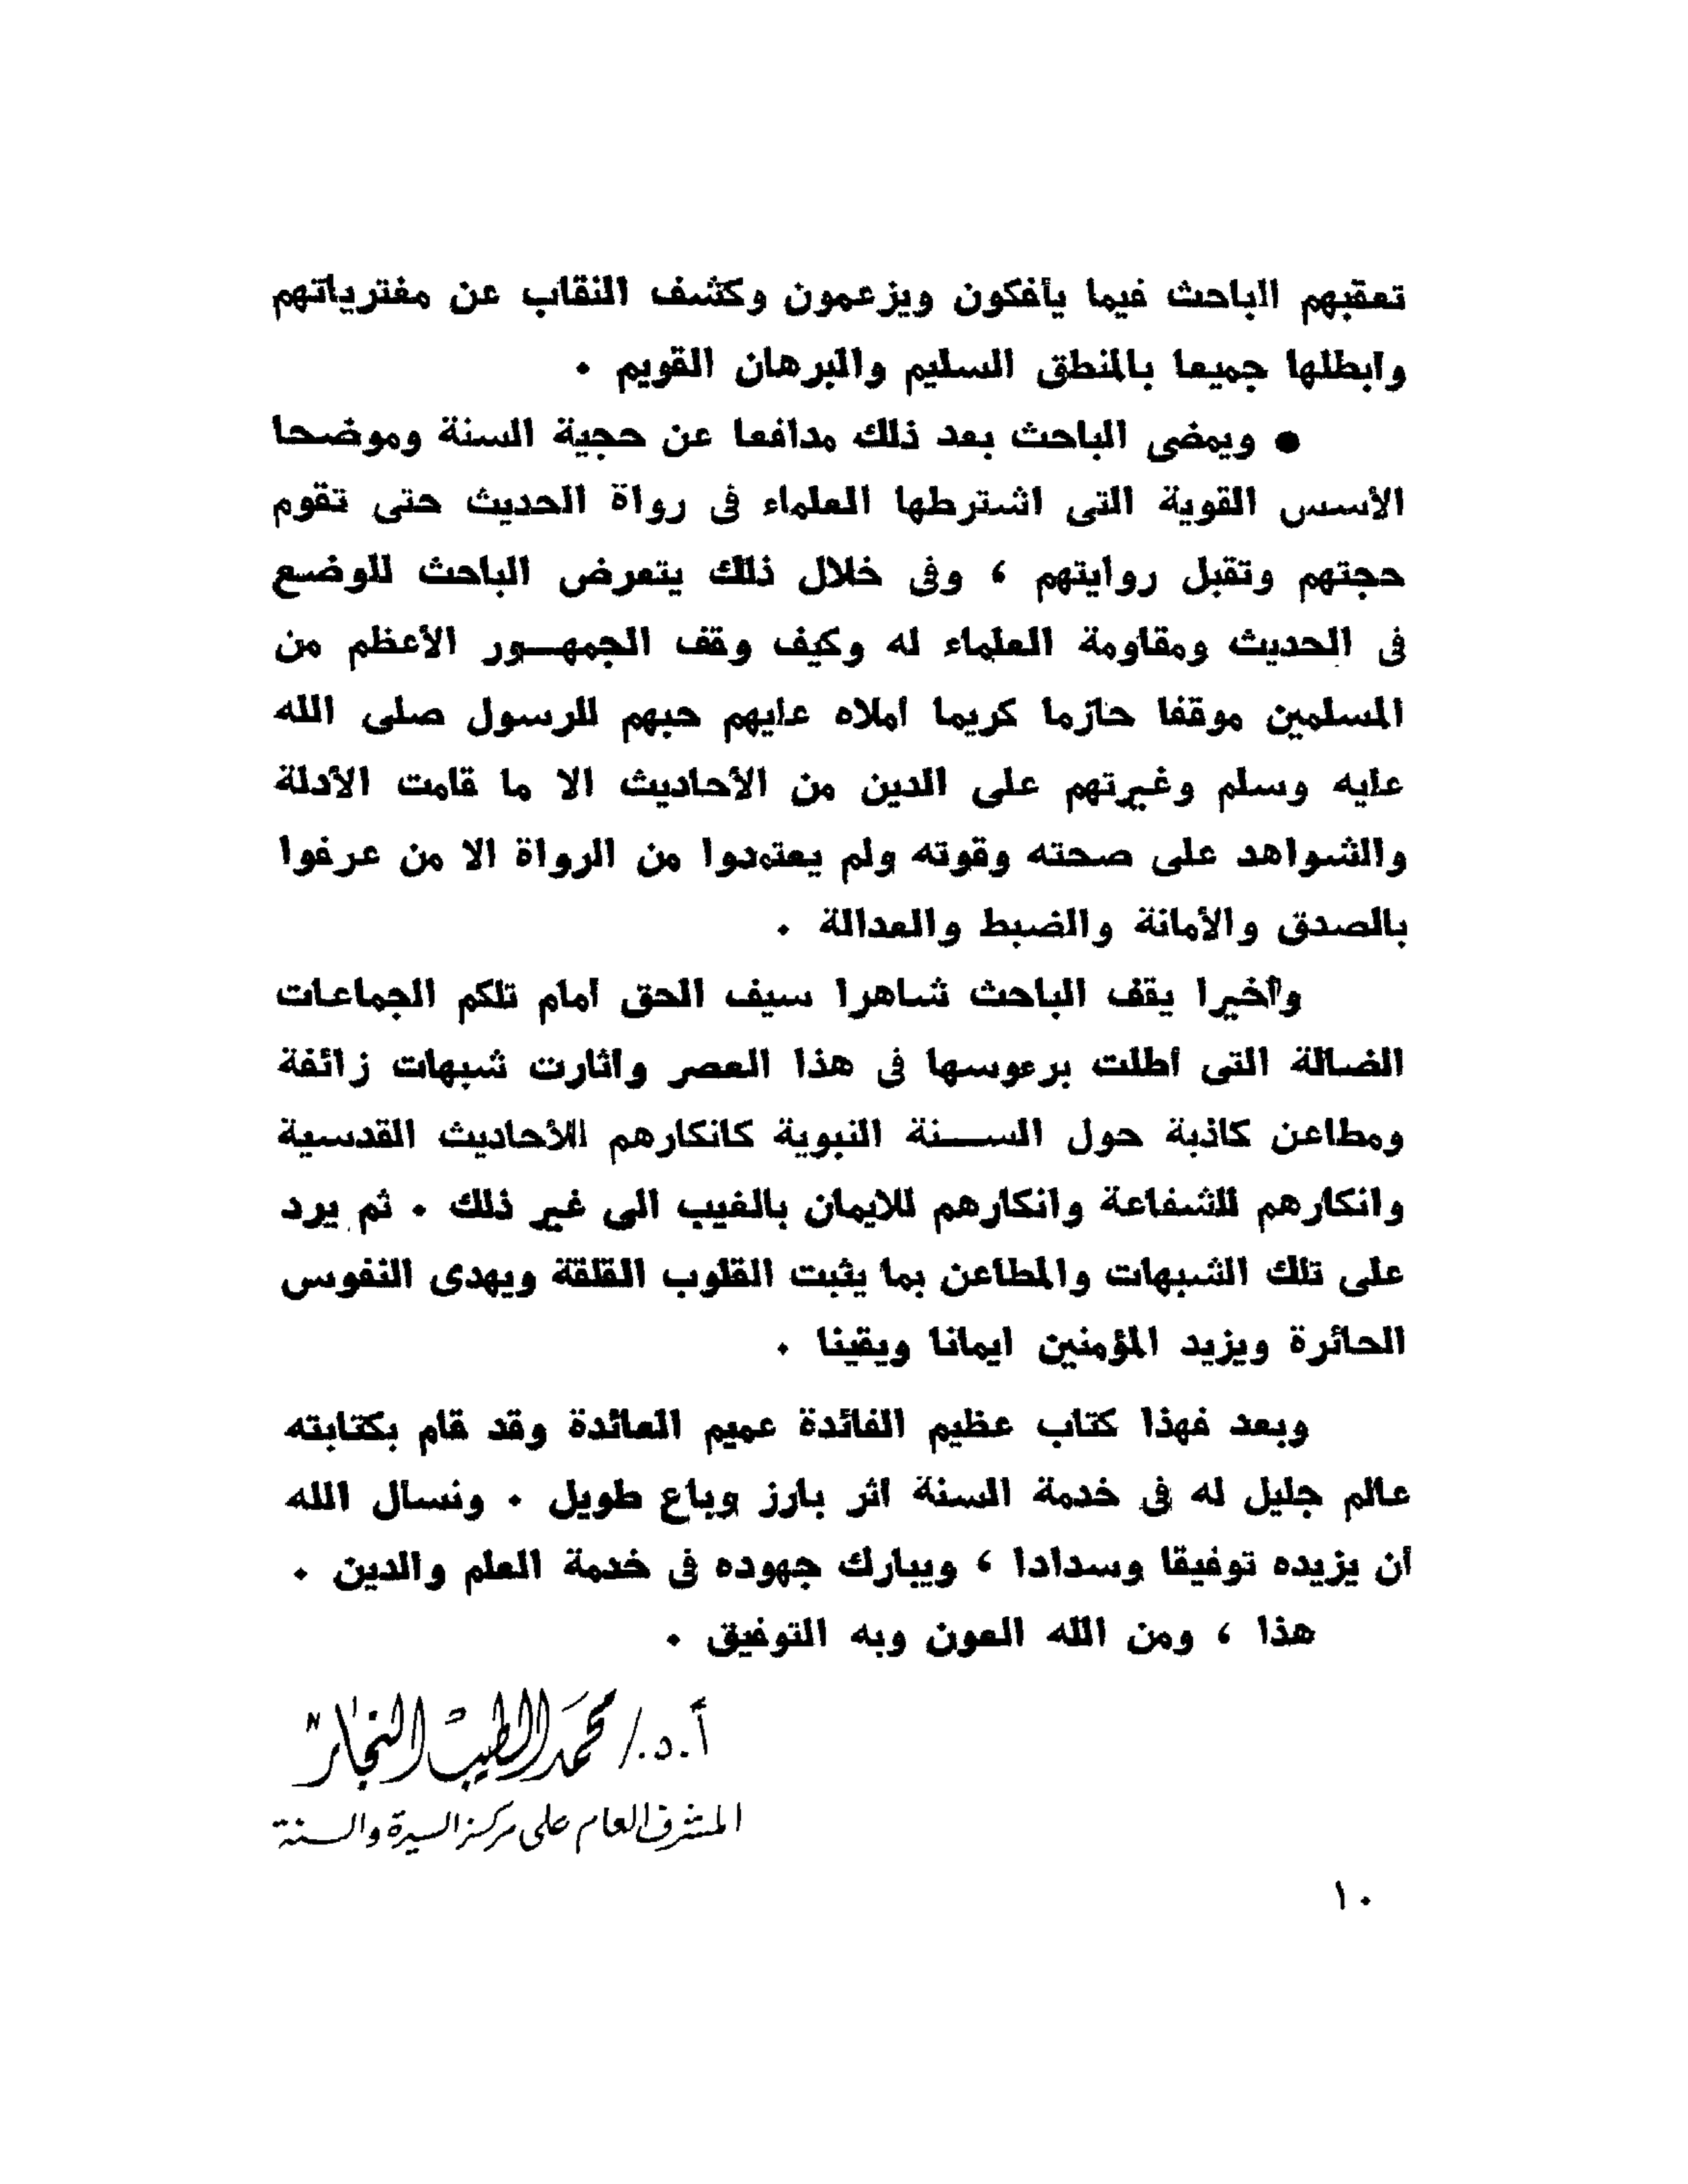 تعقبهم الباحث فيما يأفكون ويزعمون وكشف النقاب عن مفترياتهم
وابطلها جميعا بالمنطق السليم والبرهان القويم ٠
● ويمضى الباحث بعد ذلك مدافعا عن حجية السنة وموضحا
الأسس القوية التى اشترطها العلماء فى رواة الحديث حتى تقوم
حجتهم وتقبل روايتهم ، وفى خلال ذلك يتعرض الباحث للوضع
فى الحديث ومقاومة العلماء له وكيف وقف الجمهــور الأعظم من
المسلمين موقفا حازما كريما املاه عليهم حبهم للرسول صلى الله
عليه وسلم وغيرتهم على الدين من الأحاديث الا ما قامت الأدلة
والشواهد على صحته وقوته ولم يعتمدوا من الرواة الا من عرفوا
بالصدق والأمانة والضبط والعدالة ٠
وأخيرا يقف الباحث شاهرا سيف الحق أمام تلكم الجماعات
الضالة التى أطلت برءوسها فى هذا العصر واثارت شبهات زائفة
ومطاعن كاذبة حول الســنة النبوية كانكارهم للأحاديث القدسية
وانكارهم للشفاعة وانكارهم للايمان بالغيب الى غير ذلك ٠ ثم يرد
على تلك الشبهات والمطاعن بما يثبت القلوب القلقة ويهدى النفوس
الحائرة ويزيد المؤمنين ايمانا ويقينا ٠
وبعد فهذا كتاب عظيم الفائدة عميم العائدة وقد قام بكتابته
عالم جليل له فى خدمة السنة اثر بارز وباع طويل ٠ ونسال الله
أن يزيده توفيقا وسدادا ، ويبارك جهوده فى خدمة العلم والدين ٠
هذا ، ومن الله العون وبه التوفيق ٠
أ.د./ محمد الطيب النجار
المشرف العام على مركز السيرة والسنة
١٠